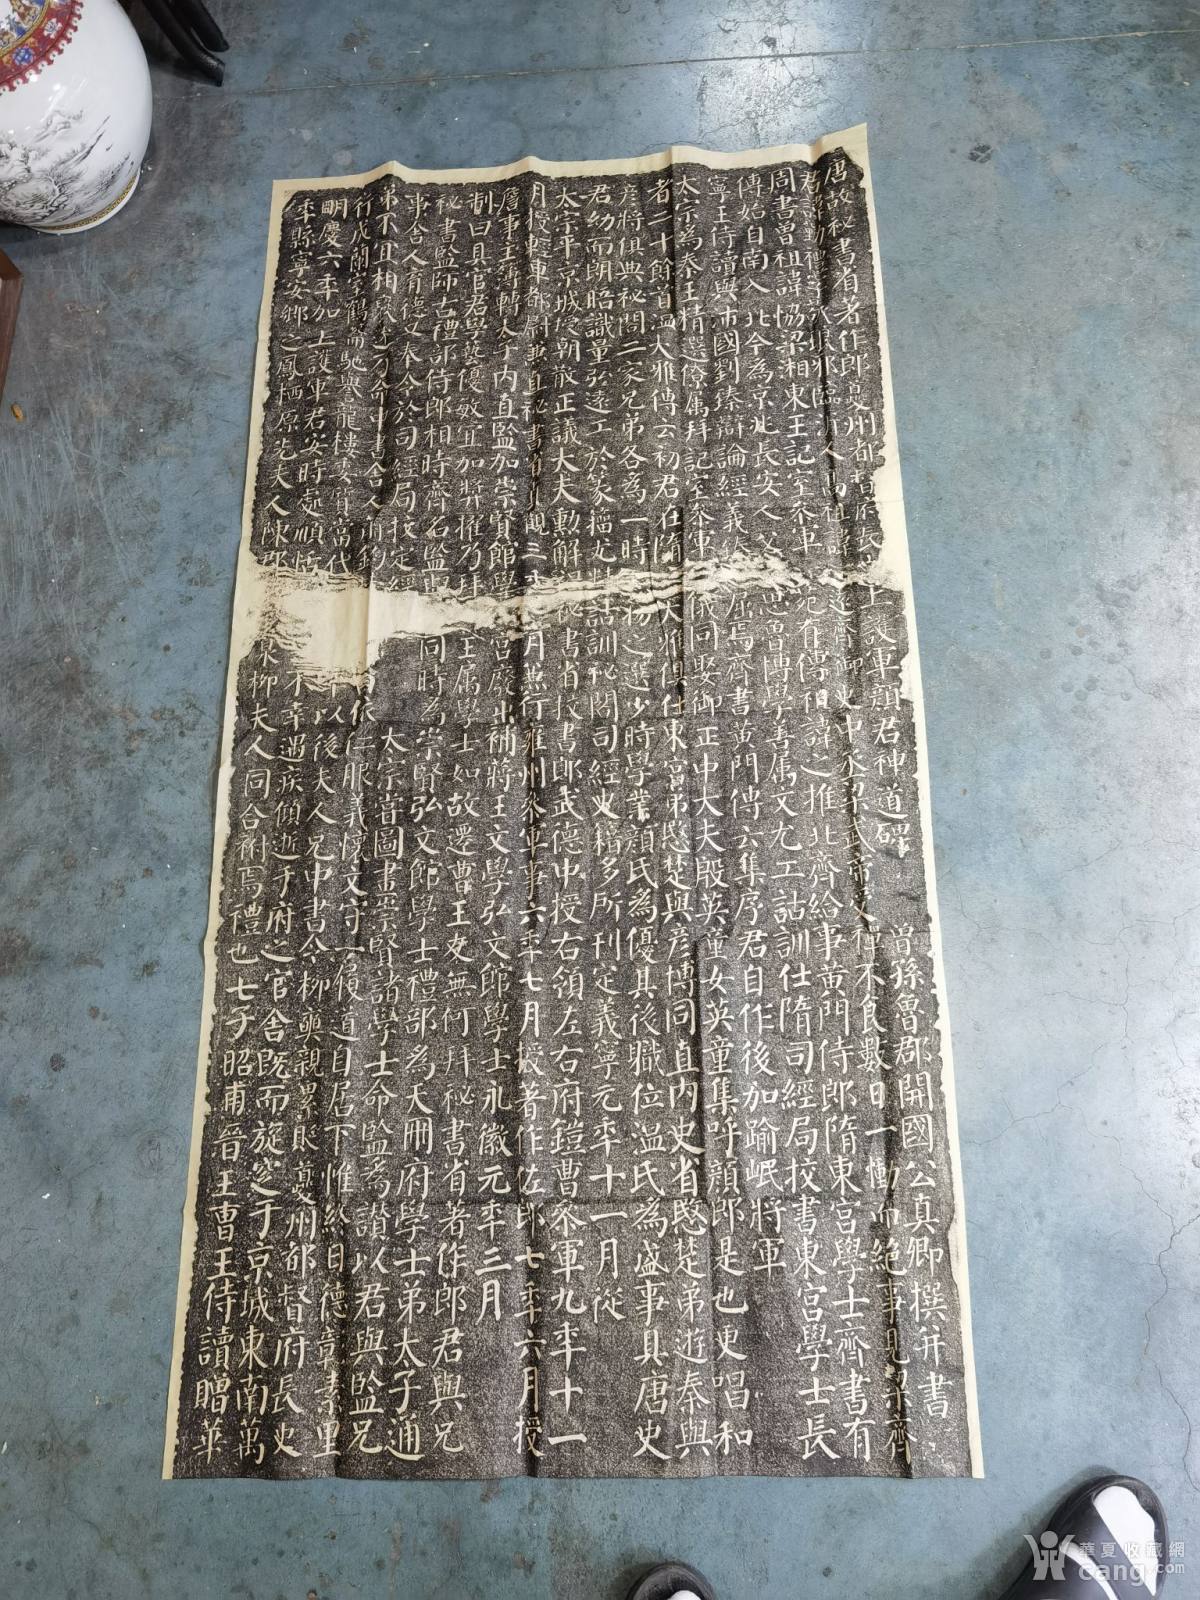 唐故秘書省著作郎夔州都督府長史上護軍顏君神道碑 曾孫魯郡開國公真卿撰并書
君諱勤禮字 琅邪臨沂人高祖諱見遠齊御史中丞梁武帝受禪不食數日一慟而絕事見梁齊
周書曾祖諱協梁湘東王記室參軍文苑有傳祖諱之推北齊給事黃門侍郎隋東宮學士齊書有
傳始自南入北今為京兆長安人父諱思魯博學善屬文尤工詁訓仕隋司經局校書東宮學士長
寧王侍讀與沛國劉臻辯論經義臻屢屈焉齊書黃門傳云集序君自作後加踰岷將軍
太宗為秦王精選僚屬拜記室參軍 儀同娶御正中大夫殷英童女英童集呼顏郎是也更唱和
者二十餘首溫大雅傳云初君在隋與大雅俱仕東宮弟愍楚與彥博同直內史省愍楚弟遊秦與
彥將俱典秘閣二家兄弟各為一時人物之選少時學業顏氏為優其後職位溫氏為盛事具唐史
君幼而朗晤識量弘遠工於篆籀尤精詁訓秘閣司經史籍多所刊定義寧元年十一月從
太宗平京城授朝散正議大夫勳解褐秘書省校書郎武德中授右領左右府鎧曹參軍九年十一
月授輕車都尉兼直秘書省貞觀三年六月兼行雍州參軍事六年七月授著作佐郎七年六月授
詹事主簿轉太子內直監加崇賢館學 宮廢出補蔣王文學弘文館學士永徽元年三月
制曰具官君學藝優敏宜加獎擢乃拜 王屬學士如故遷曹王友無何拜秘書省著作郎君與兄
秘書監師古禮部侍郎相時齊名監與 同時為崇賢弘文館學士禮部為天冊府學士弟太子通
事舍人育德又奉令於司經局校定經 太宗嘗圖畫崇賢諸學士命監為讚以君與監兄
弟不宜相褒述乃命中書舍人蕭鈞特 曰依仁服義懷文守一履道自居下帷終日德彰素里
行成蘭室鶴籥馳譽龍樓委質當代 年以後夫人兄中書令柳奭親累貶夔州都督府長史
明慶六年加上護軍君安時處順恬 不幸遇疾傾逝于府之官舍既而旋窆于京城東南萬
年縣寧安鄉之鳳栖原先夫人陳郡 泉柳夫人同合祔焉禮也七子昭甫晉王曹王侍讀贈華
華夏收藏網
cang.com